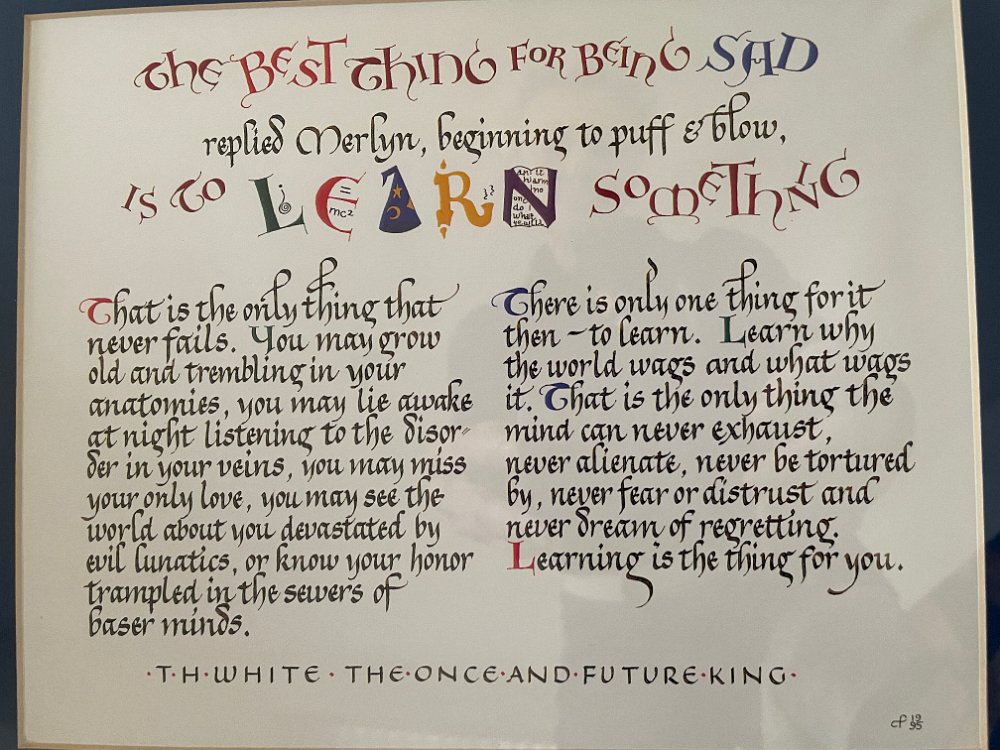 The BEST Thing FOR BEING SAD
replied Merlyn, beginning to puff & blow,
IS TO LEARN SOMETHING
mc2
That is the only thing that
never fails. You may grow
old and trembling in your
anatomies, you may lie awake
at night listening to the disor-
der in your veins, you may miss
your only love, you may see the
world about you devastated by
evil lunatics, or know your honor
trampled in the sewers of
baser minds.
There is only one thing for it
then – to learn. Learn why
the world wags and what wags
it. That is the only thing the
mind can never exhaust,
never alienate, never be tortured
by, never fear or distrust and
never dream of regretting.
Learning is the thing for you.
·T·H·WHITE · THE·ONCE·AND·FUTURE·KING·
cf 19
95